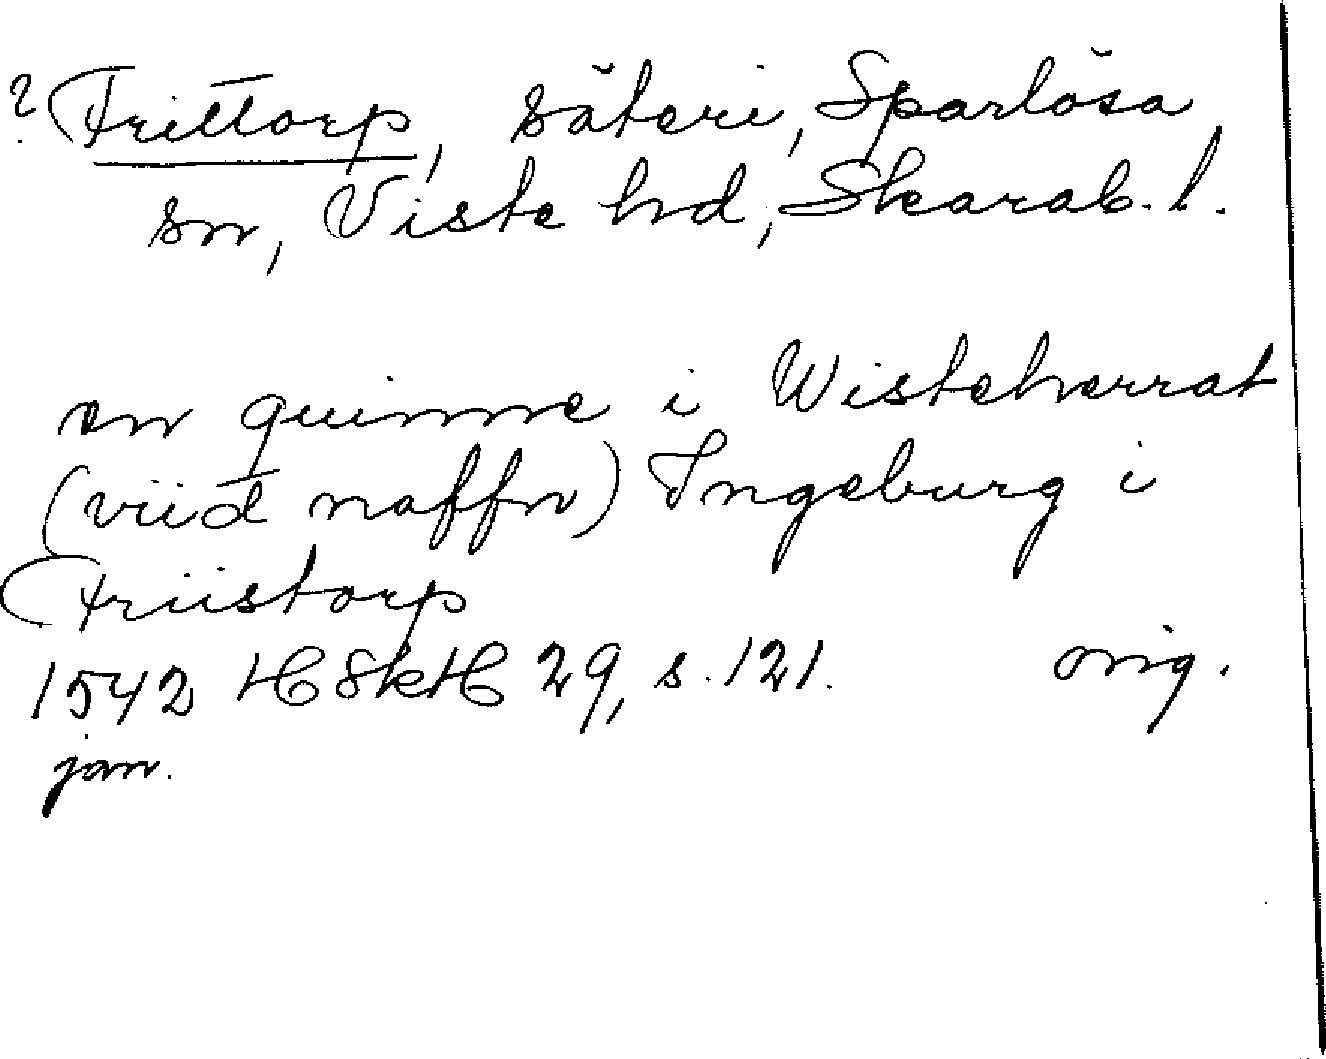 ? Frittorp, säteri, Sparlösa
sn, Viste hd, Skarab. l.
en quinne i Wisteherrat
(viid naffn) Ingeburg i
Friistorp
1542 HSkH 29, s. 121. orig.
jan.